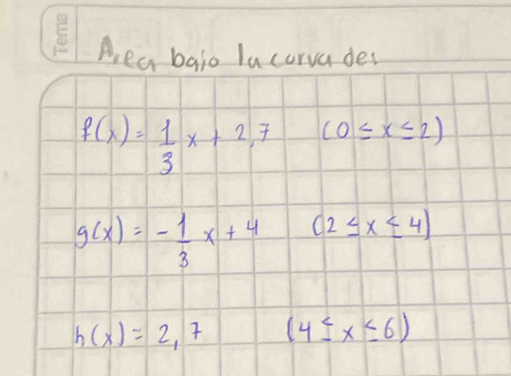 Tema
Area bajo la curva de:
f(x) = 1/3 x + 2,7 (0 ≤ x ≤ 2)
g(x) = - 1/3 x + 4 (2 ≤ x ≤ 4)
h(x) = 2,7 (4 ≤ x ≤ 6)